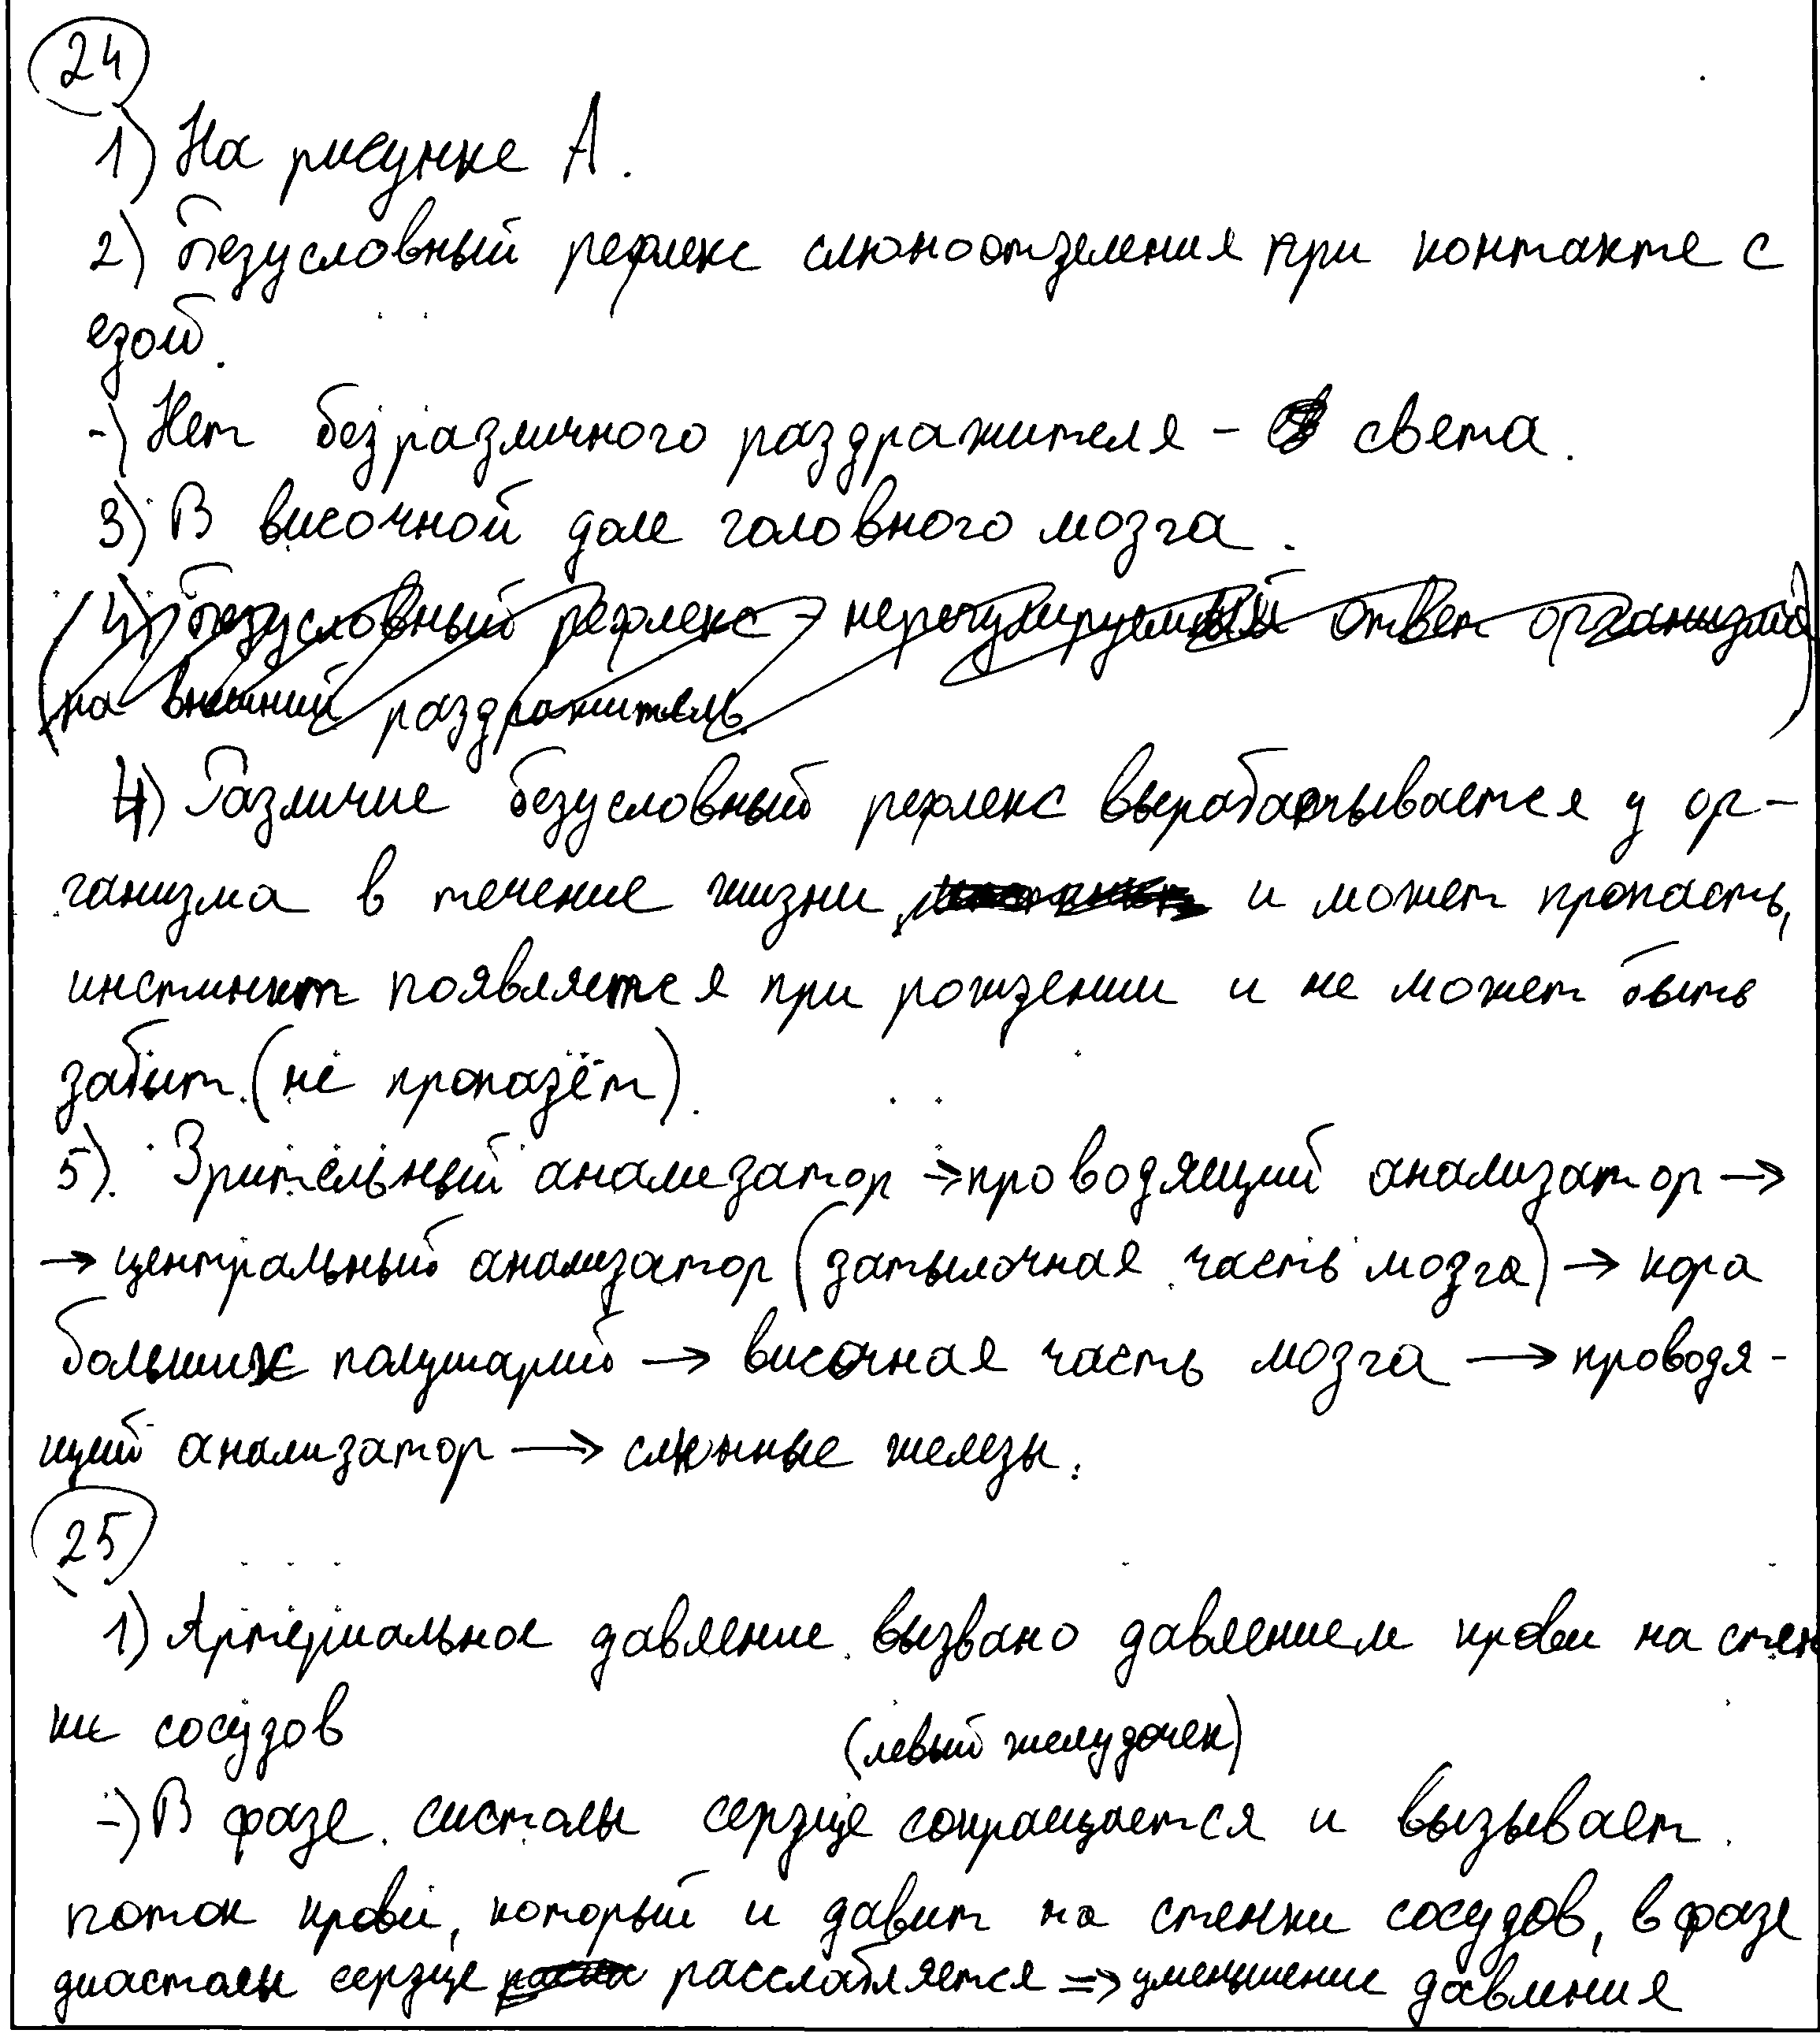 24
1) На рисунке А.
2) Безусловный рефлекс слюноотделения при контакте с
едой.
-) Нет безразличного раздражителя - света.
3) В височной доле головного мозга.
4) Безусловный рефлекс - нерегулируемый ответ организма
на внешний раздражитель
4) Различие безусловный рефлекс вырабатывается у ор-
ганизма в течение жизни и может пропасть,
инстинкт появляется при рождении и не может быть
забыт. (не пропадёт).
5). Зрительный анализатор → проводящий анализатор →
→ центральный анализатор (затылочная часть мозга) → кора
больших полушарий → височная часть мозга → проводя-
щий анализатор → слюнные железы.
25
1) Артериальное давление вызвано давлением крови на стен
ки сосудов
(левый желудочек)
-) В фазе систолы сердце сокращается и вызывает
поток крови, который и давит на стенки сосудов, в фазе
диастолы сердце расслабляется => уменьшение давления